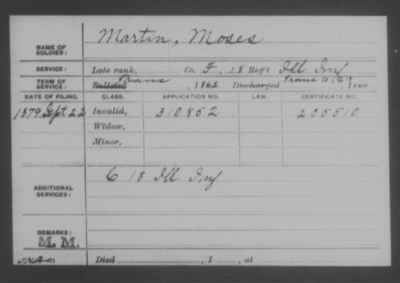 NAME OF SOLDIER: Martin, Moses
SERVICE: Late rank, Co. F, 18 Reg't Ill Inf
TERM OF SERVICE: Enlisted , 1862 Discharged , 1
DATE OF FILING. CLASS. APPLICATION NO. LAW. CERTIFICATE NO.
1879 Sept 22 Invalid, 310852 205510
Widow,
Minor,
ADDITIONAL SERVICES: C 18 Ill Inf
REMARKS:
M. M.
Died , 1 , at